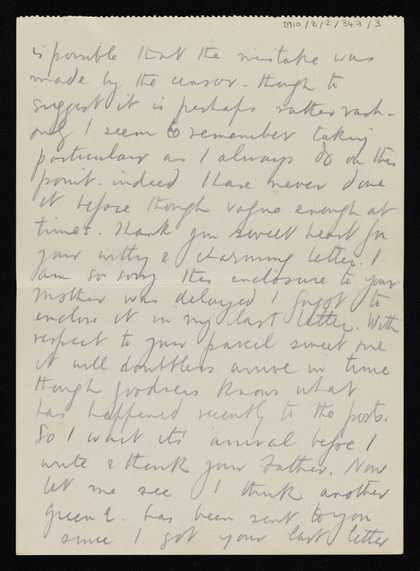 is possible that the mistake was
made by the censor. though to
suggest it is perhaps rather rash.
only I seem to remember taking
particular as I always do on this
point. indeed I have never done
it before though vague enough at
times. Thank you sweet heart for
your witty & charming letter. I
am so sorry this enclosure to your
mother was delayed I forgot to
enclose it in my last letter. With
respect to your parcel sweet one
it will doubtless arrive in time
though goodness knows what
has happened recently to the posts.
So I wait its' arrival before I
write & thank your Father. Now
let me see I think another
green E. has been sent to you
since I got your last letter